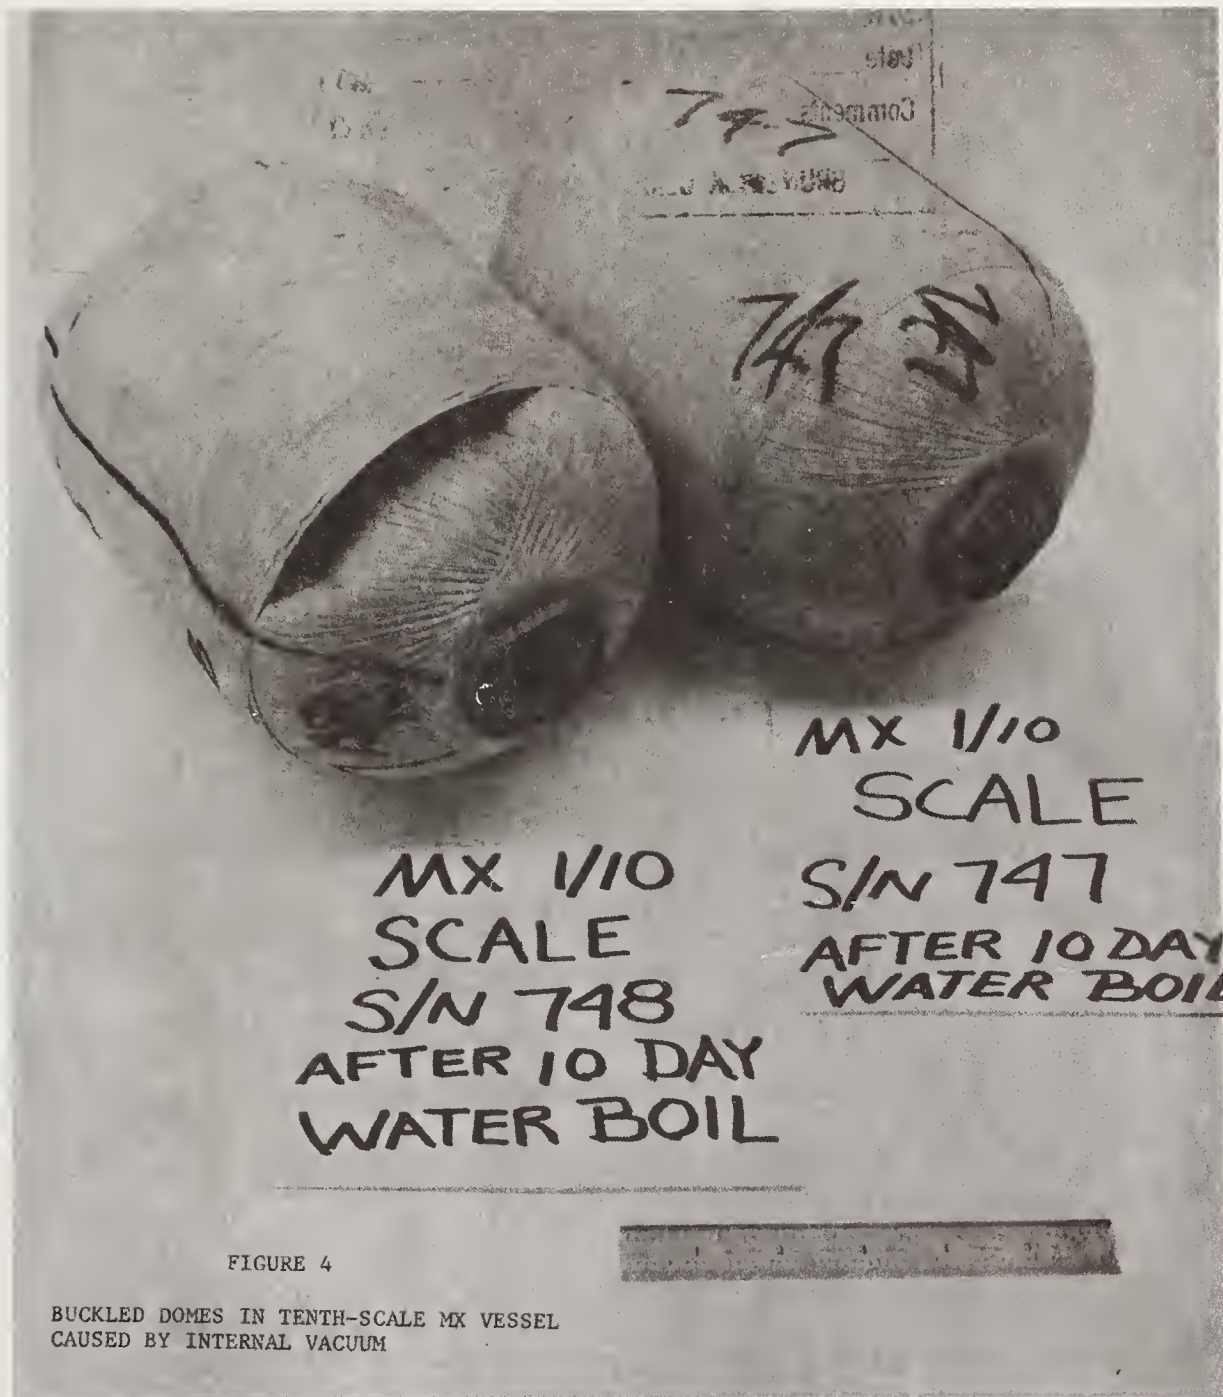 747
747
MX 1/10
SCALE
S/N 747
AFTER 10 DAY
WATER BOIL
MX 1/10
SCALE
S/N 748
AFTER 10 DAY
WATER BOIL
FIGURE 4
BUCKLED DOMES IN TENTH-SCALE MX VESSEL
CAUSED BY INTERNAL VACUUM